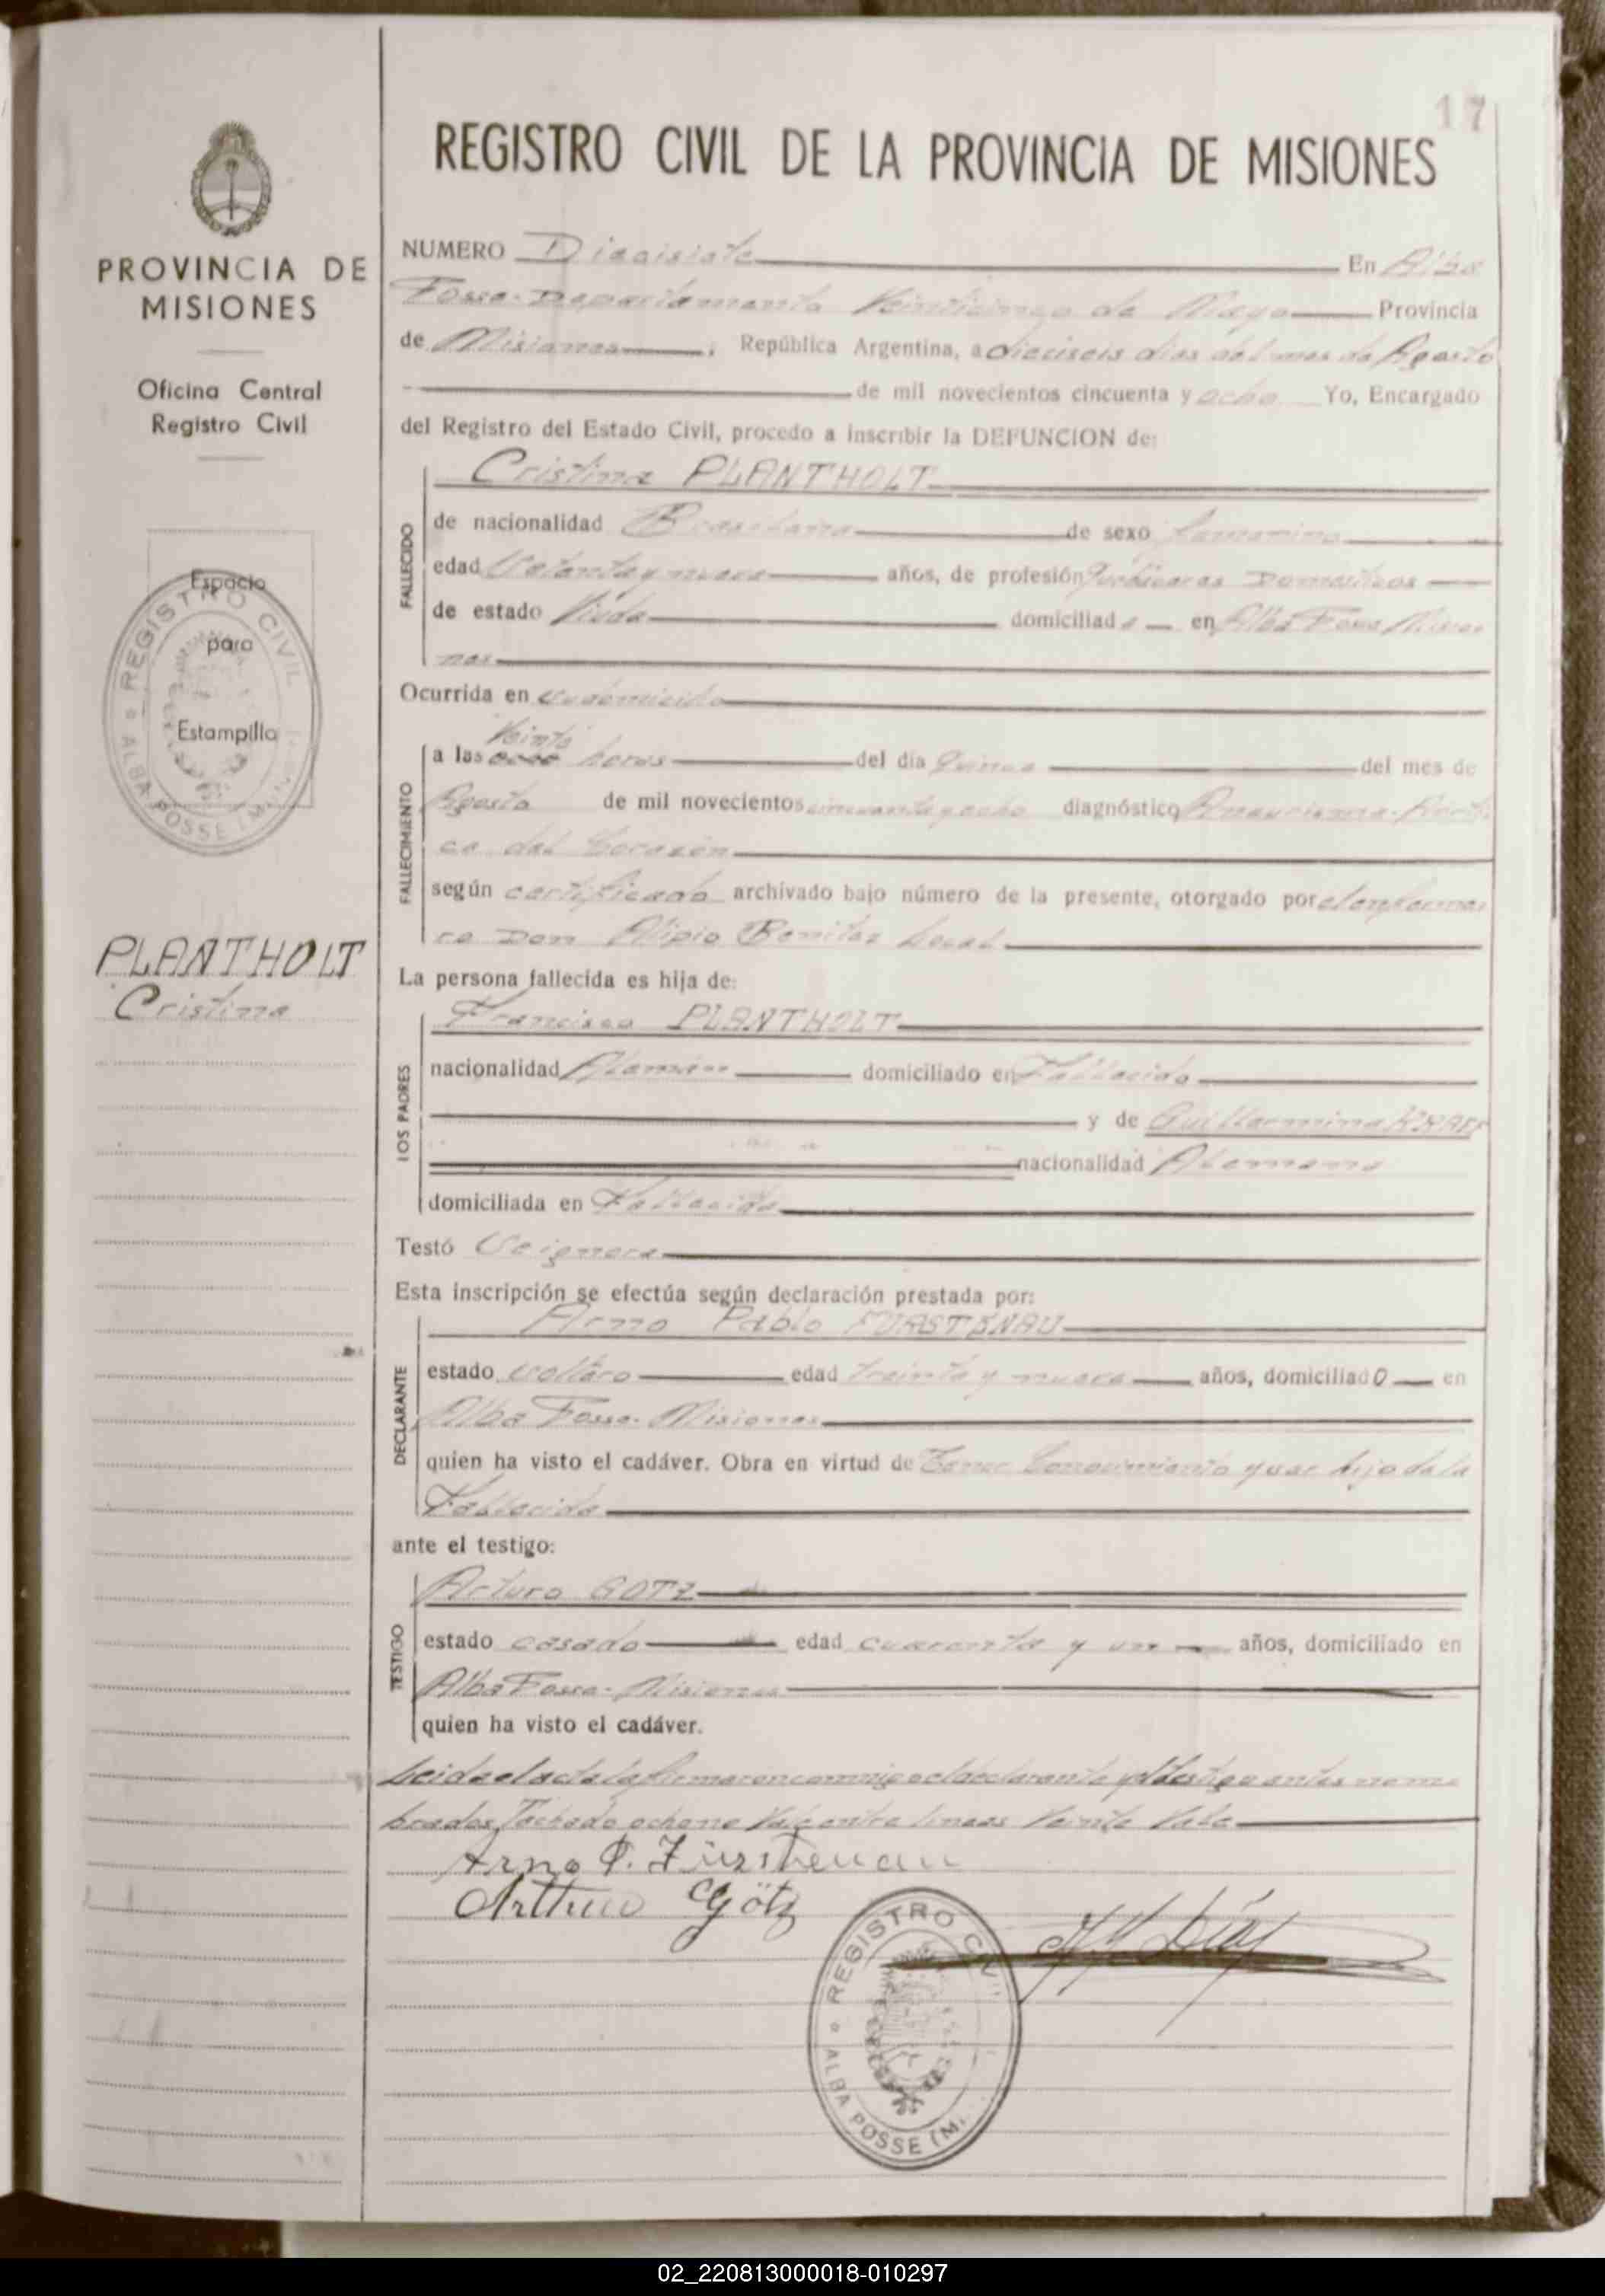 17
REGISTRO CIVIL DE LA PROVINCIA DE MISIONES
PROVINCIA DE
MISIONES
Oficina Central
Registro Civil
Espacio
para
Estampilla
REGISTRO CIVIL
ALBA POSSE (M
PLANTHOLT
Cristina
NUMERO Diecisiete En Alba
Posse- Departamento Veinticinco de Mayo Provincia
de Misiones, República Argentina, a dieciseis dias del mes de Agosto
de mil novecientos cincuenta y ocho Yo, Encargado
del Registro del Estado Civil, procedo a inscribir la DEFUNCION de:
Cristina PLANTHOLT
FALLECIDO
de nacionalidad Brasilera de sexo femenino
edad Setenta y nueve años, de profesión Quehaceres Domesticos
de estado Viuda domiciliada en Alba Posse Misio
nes
Ocurrida en su domicilio
Veinte
FALLECIMIENTO
a las ocho horas del día Quince del mes de
Agosto de mil novecientos cincuenta y ocho diagnóstico
ca del Corazón
según certificado archivado bajo número de la presente, otorgado por el enferme
ro Don Alipio Benitez local
La persona fallecida es hija de:
Francisco PLANTHOLT
LOS PADRES
nacionalidad Alemán domiciliado en Fallecido
y de Guillermina
nacionalidad Alemana
domiciliada en Fallecida
Testó Se ignora
Esta inscripción se efectúa según declaración prestada por:
Arno Pablo FURSTENAU
DECLARANTE
estado soltero edad treinta y nueve años, domiciliado en
Alba Posse- Misiones
quien ha visto el cadáver. Obra en virtud de Tener Conocimiento y ser hijo de la
Fallecida
ante el testigo:
Arturo GOTZ
TESTIGO
estado casado edad cuarenta y un años, domiciliado en
Alba Posse- Misiones
quien ha visto el cadáver.
Leida el acta la firmaron conmigo el declarante y el testigo antes nom
brados Tachado ocho no Vale entre lineas Veinte Vale
Arno P. Fürstenau
Arthur Götz
Díaz
REGISTRO CIV
ALBA POSSE (M.
02_220813000018-010297